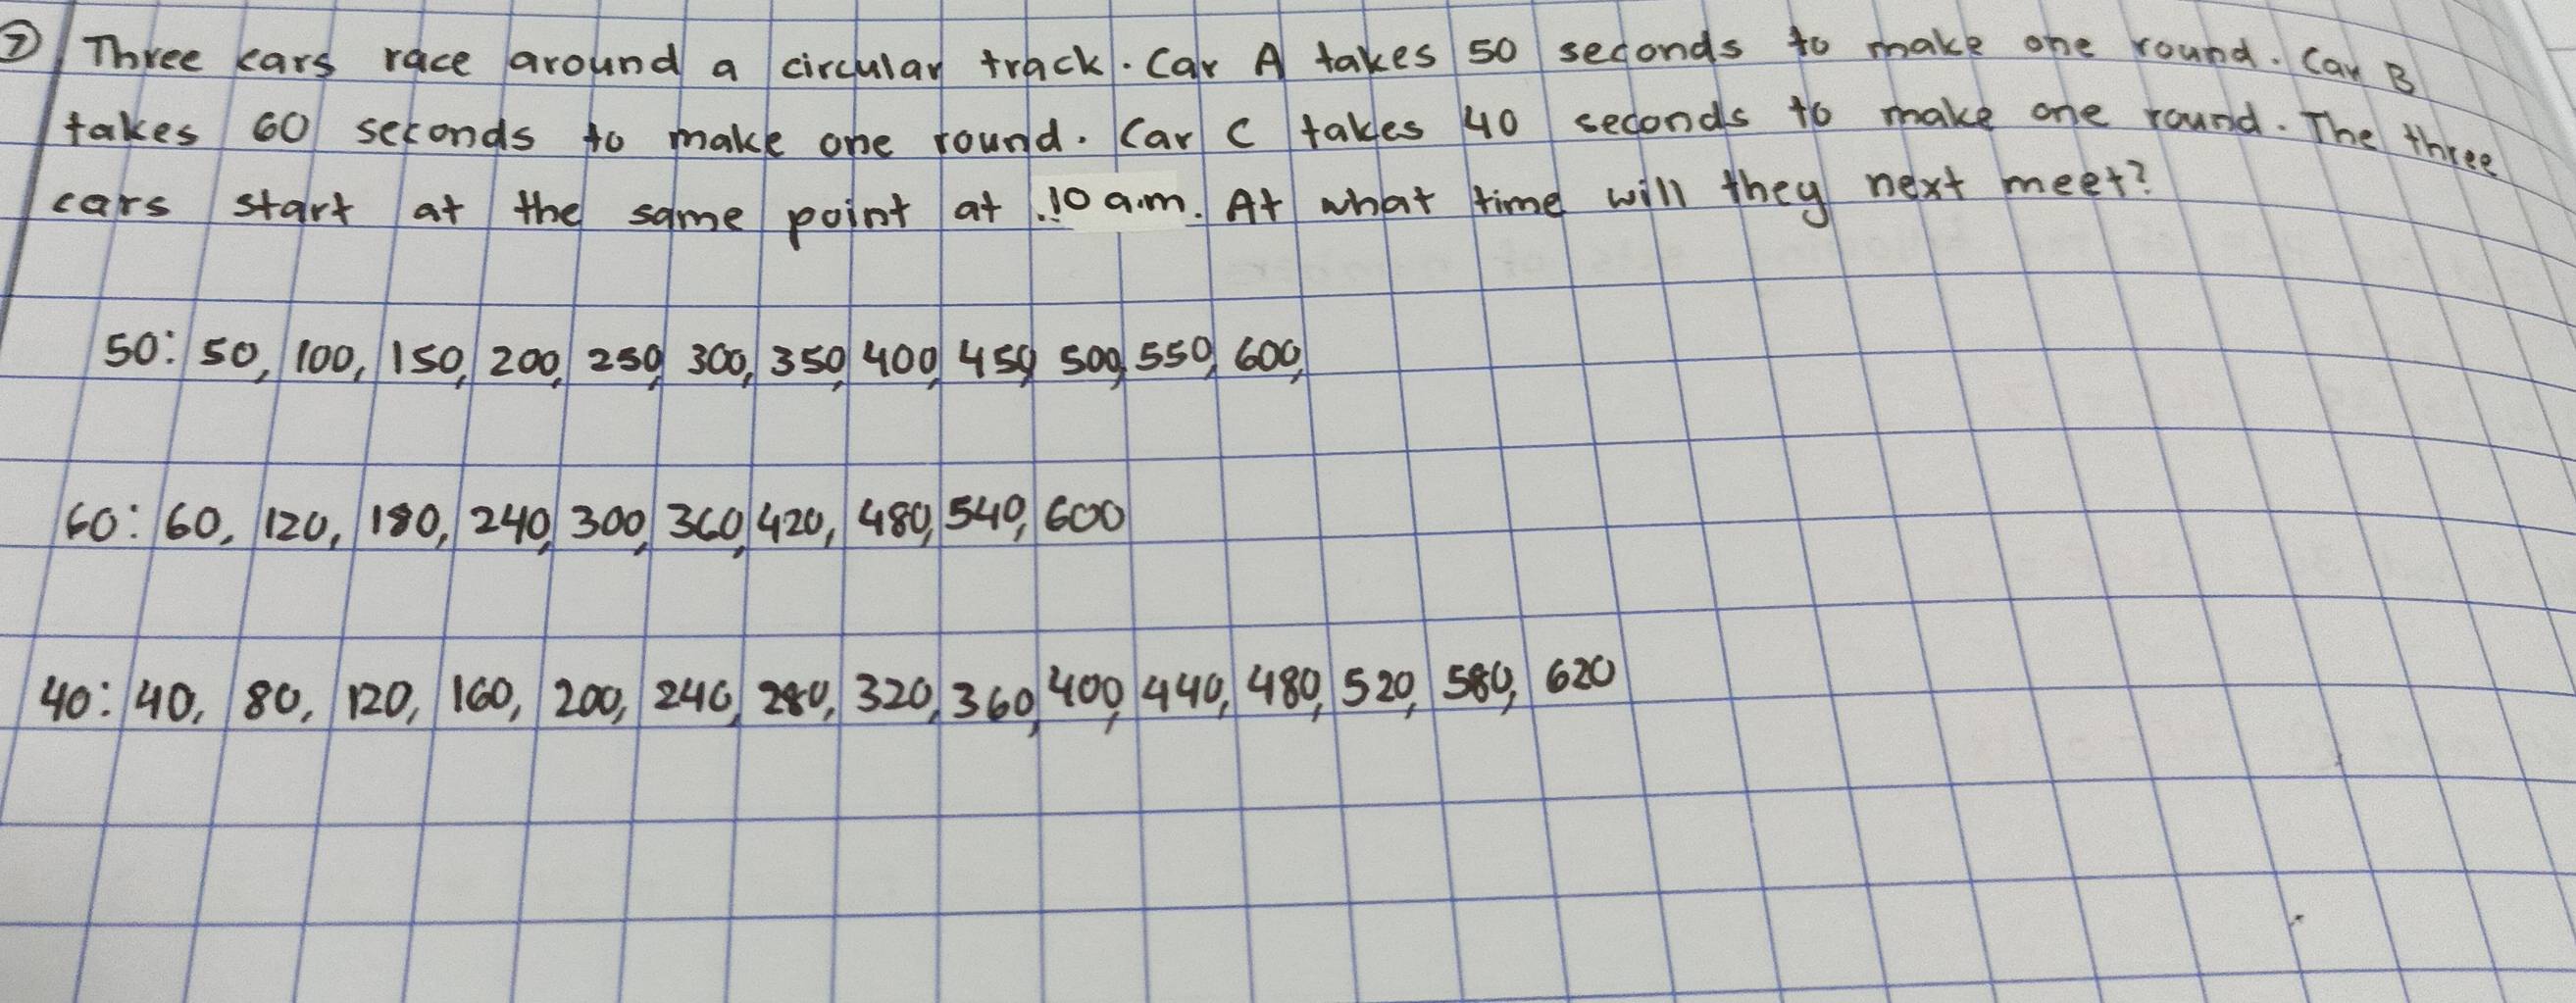 ⑦ Three cars race around a circular track. Car A takes 50 seconds to make one round. Car B
takes 60 seconds to make one round. Car C takes 40 seconds to make one round. The three
cars start at the same point at .10 a.m. At what time will they next meet?
50: 50, 100, 150, 200, 250, 300, 350, 400, 450, 500, 550, 600,
60: 60, 120, 180, 240, 300, 360, 420, 480, 540, 600
40: 40, 80, 120, 160, 200, 240, 280, 320, 360, 400, 440, 480, 520, 580, 620